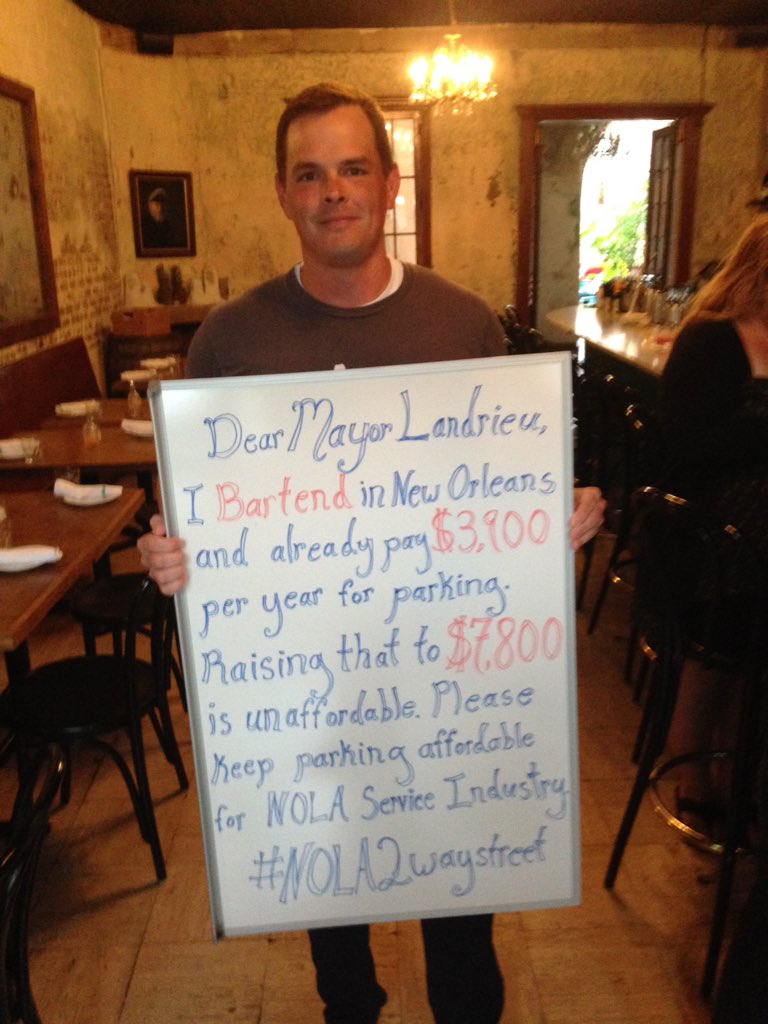 Dear Mayor Landrieu,
I Bartend in New Orleans
and already pay $3,900
per year for parking.
Raising that to $7,800
is unaffordable. Please
keep parking affordable
for NOLA Service Industry
#NOLA2waystreet